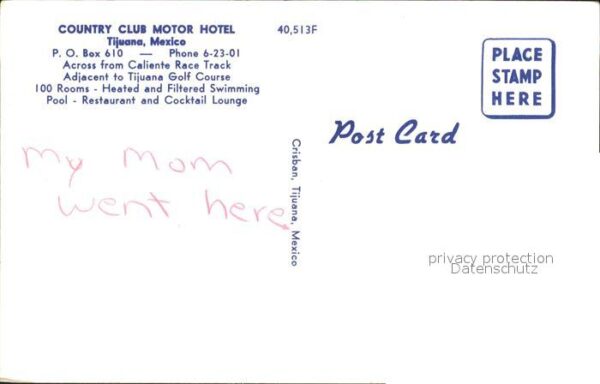 COUNTRY CLUB MOTOR HOTEL
Tijuana, Mexico
P. O. Box 610 — Phone 6-23-01
Across from Caliente Race Track
Adjacent to Tijuana Golf Course
100 Rooms - Heated and Filtered Swimming
Pool - Restaurant and Cocktail Lounge
40,513F
PLACE
STAMP
HERE
Post Card
My Mom
went here
Crisban, Tijuana, Mexico
privacy protection
Datenschutz